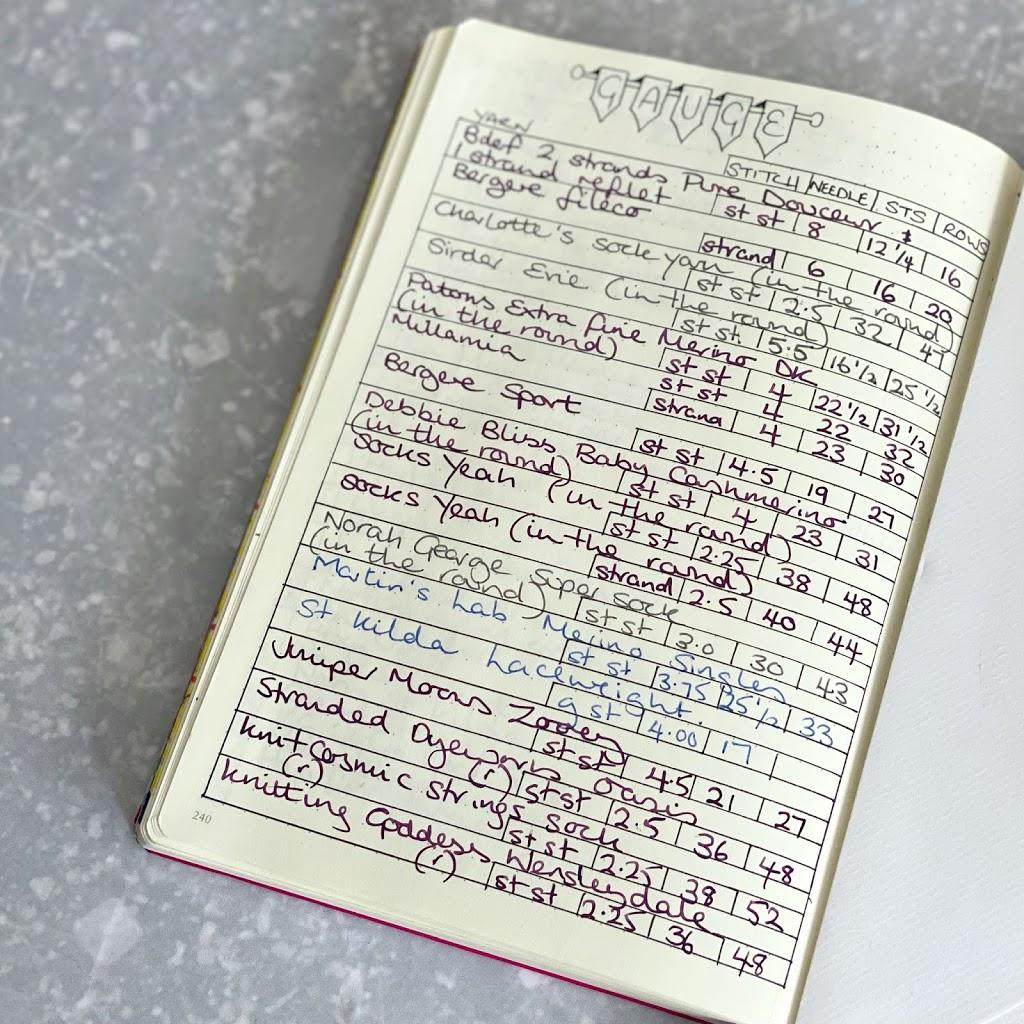 GAUGE
YARN STITCH NEEDLE STS ROWS
Bdef 2 strands Pure Douceur &
1 strand reflet st st 8 12 1/4 16
Bergere fileco strand 6 16 20
Charlotte's sock yarn (in the round
st st 2.5 32
Sirdar Evie (in the round) st st. 5.5 16 1/2 25 1/2
Patons Extra fine Merino DK
(in the round) st st 4 22 1/2 31 1/2
st st 4 22 32
Millamia strand 4 23 30
Bergere Sport st st 4.5 19 27
Debbie Bliss Baby Cashmerino
(in the round) st st 4 23 31
Socks Yeah (in the round) st st 2.25 38 48
Socks Yeah (in the round) strand 2.5 40 44
Norah George Super sock
(in the round) st st 3.0 30 43
Martin's Lab Merino Singles st st 3.75 25 1/2 33
St Kilda Laceweight. g st 4.00 17
Juniper Moons Zooey st st 4.5 21 27
Stranded Dyeworks Oasis (r) st st 2.5 36 48
Knit cosmic strings sock (r) st st 2.25 38 52
Knitting Goddess Wensleydale (r) st st 2.25 36 48
240